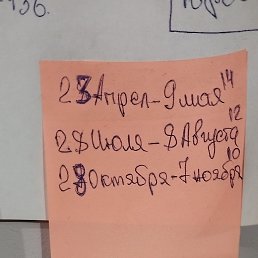 23 Апрел-9 мая 14
28 Июля-8 Августа 12
28 Октября-7 ноября 10